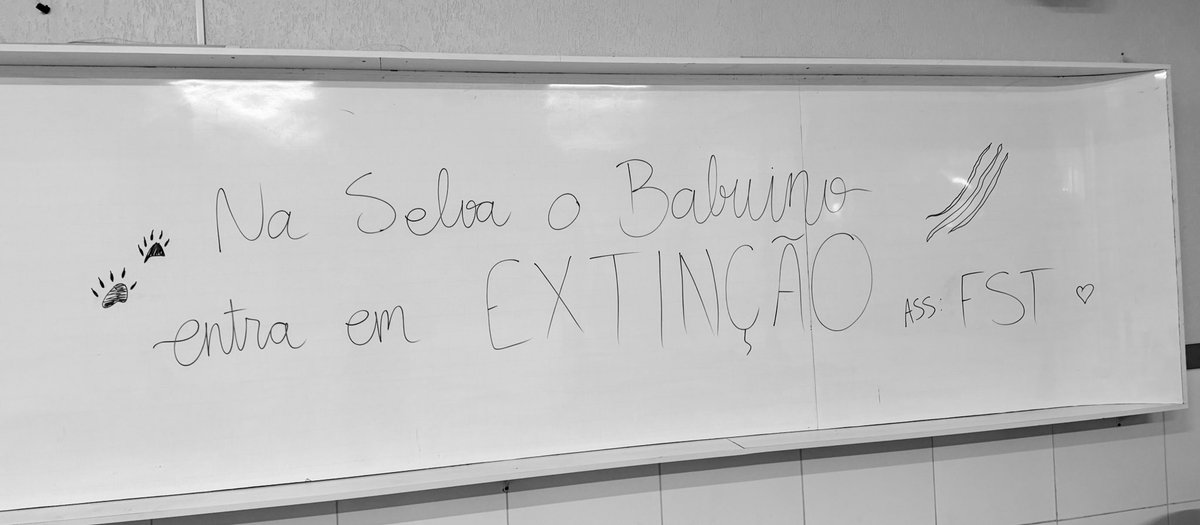 Na Selva o Babuino
entra em EXTINÇÃO
ASS: FST